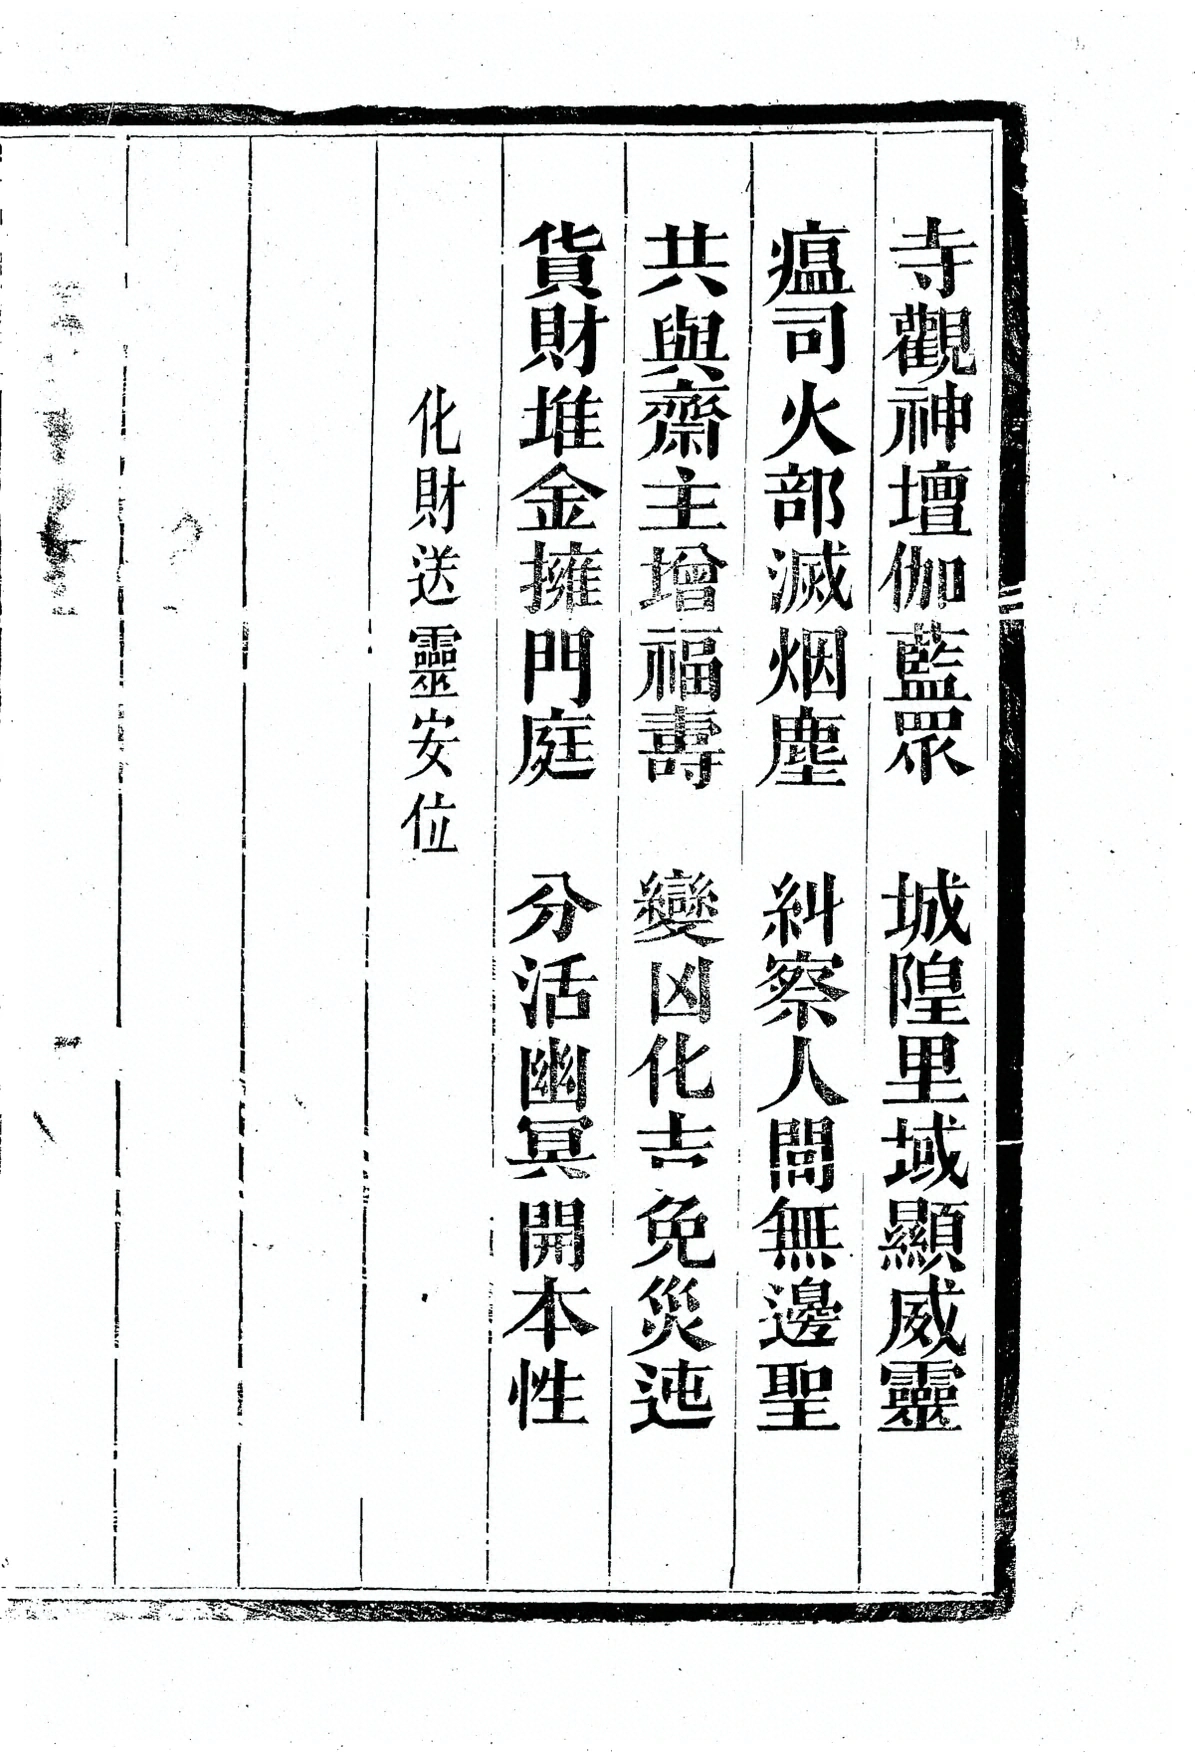 寺觀神壇伽藍眾　城隍里域顯威靈
瘟司火部滅烟塵　糾察人間無邊聖
共與齋主增福壽　變凶化吉免災迍
貨財堆金擁門庭　分活幽冥開本性
化財送靈安位